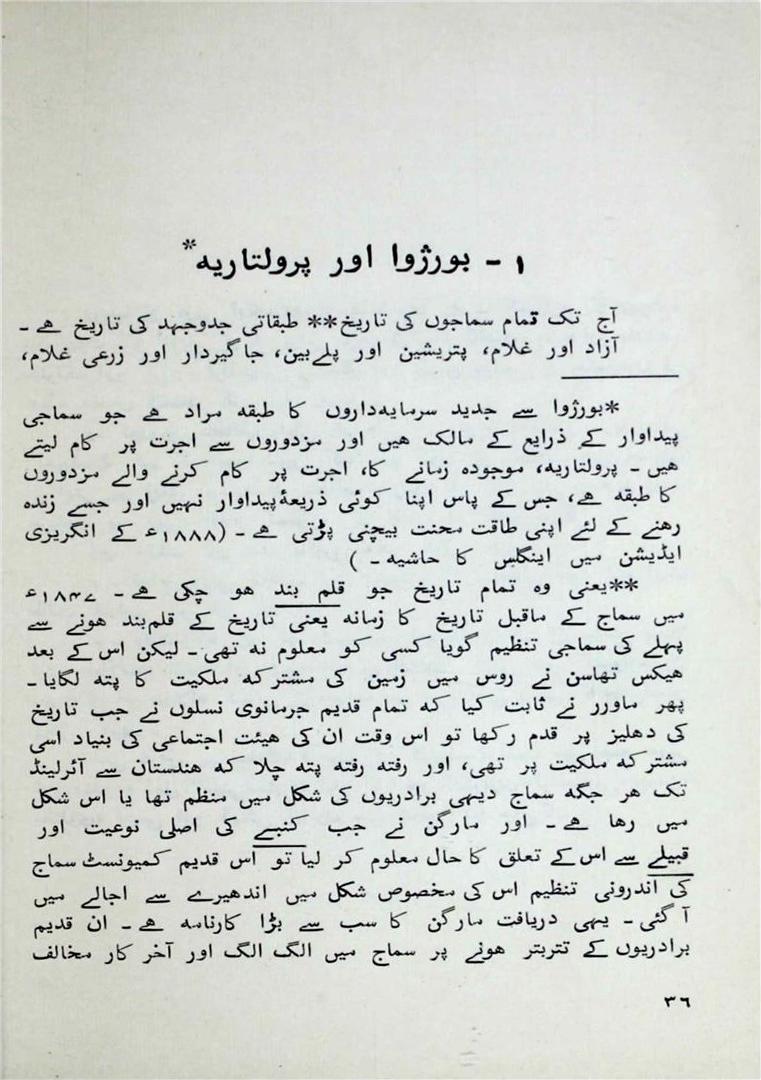 ۱ - بورژوا اور پرولتاریہ*
آج تک تمام سماجوں کی تاریخ** طبقاتی جدوجہد کی تاریخ ھے۔
آزاد اور غلام، پتریشین اور پلےبین، جاگیردار اور زرعی غلام،
*بورژوا سے جدید سرمایہ‌داروں کا طبقہ مراد ھے جو سماجی
پیداوار کے ذرایع کے مالک ھیں اور مزدوروں سے اجرت پر کام لیتے
ھیں۔ پرولتاریہ، موجودہ زمانے کا، اجرت پر کام کرنے والے مزدوروں
کا طبقہ ھے، جس کے پاس اپنا کوئی ذریعۂ پیداوار نہیں اور جسے زندہ
رھنے کے لئے اپنی طاقت محنت بیچنی پڑتی ھے۔ (۱۸۸۸ء کے انگریزی
ایڈیشن میں اینگلس کا حاشیہ۔)
**یعنی وہ تمام تاریخ جو قلم بند ھو چکی ھے۔ ۱۸۴۷ء
میں سماج کے ماقبل تاریخ کا زمانہ یعنی تاریخ کے قلم‌بند ھونے سے
پہلے کی سماجی تنظیم گویا کسی کو معلوم نہ تھی۔ لیکن اس کے بعد
ھیکس تھاسن نے روس میں زمین کی مشترکہ ملکیت کا پتہ لگایا۔
پھر ماورر نے ثابت کیا کہ تمام قدیم جرمانوی نسلوں نے جب تاریخ
کی دھلیز پر قدم رکھا تو اس وقت ان کی ھیئت اجتماعی کی بنیاد اسی
مشترکہ ملکیت پر تھی، اور رفتہ رفتہ پتہ چلا کہ ھندستان سے آئرلینڈ
تک ھر جگہ سماج دیہی برادریوں کی شکل میں منظم تھا یا اس شکل
میں رھا ھے۔ اور مارگن نے جب کنبے کی اصلی نوعیت اور
قبیلے سے اس کے تعلق کا حال معلوم کر لیا تو اس قدیم کمیونسٹ سماج
کی اندرونی تنظیم اس کی مخصوص شکل میں اندھیرے سے اجالے میں
آ گئی۔ یہی دریافت مارگن کا سب سے بڑا کارنامہ ھے۔ ان قدیم
برادریوں کے تتربتر ھونے پر سماج میں الگ الگ اور آخر کار مخالف
۳۶